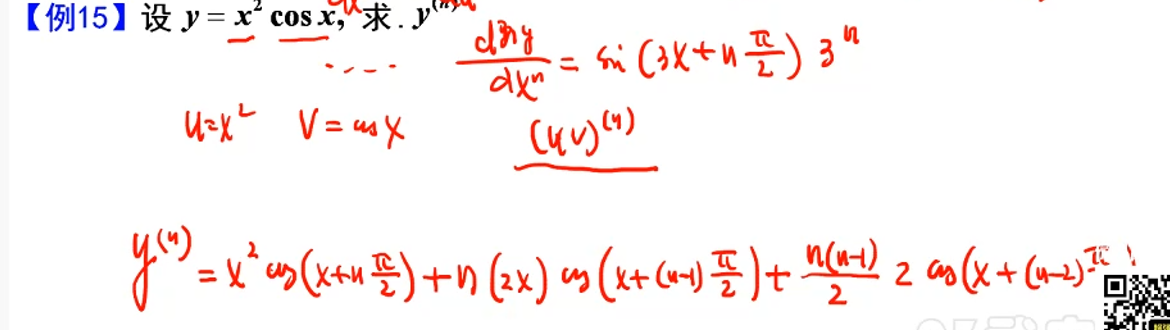 【例15】设 y = x² cos x, 求. y⁽ⁿ⁾
dⁿy/dxⁿ = sin (3x + n π/2) 3ⁿ
u = x² V = cos x (uv)⁽ⁿ⁾
y⁽ⁿ⁾ = x² cos(x + n π/2) + n (2x) cos (x + (n-1) π/2) + n(n-1)/2 2 cos(x + (n-2) π